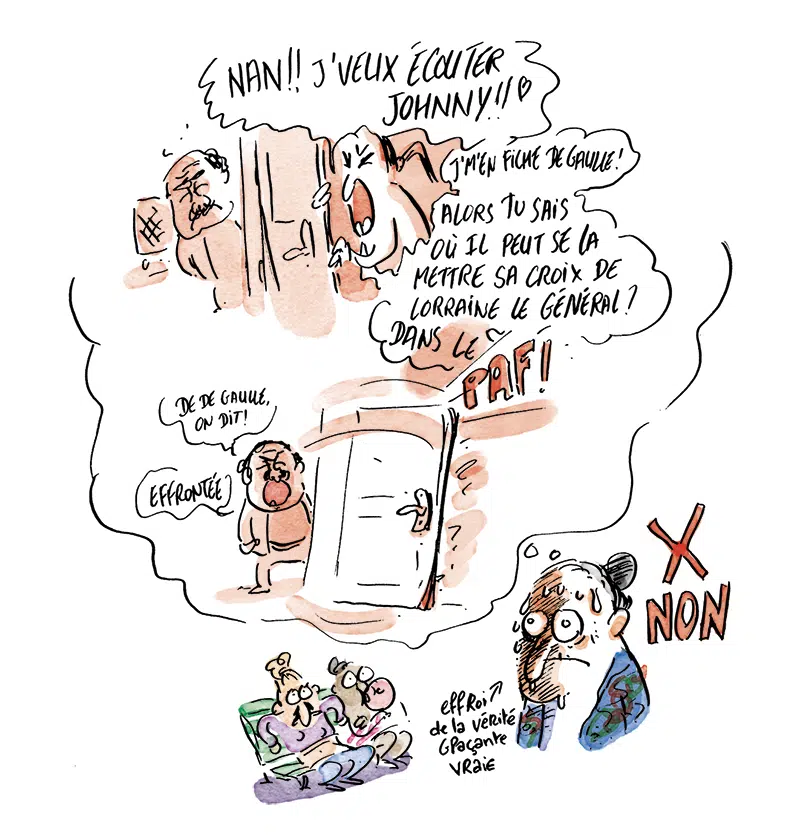 NAN!! J'VEUX ÉCOUTER
JOHNNY!!
J'M'EN FICHE DE GAULLE!
ALORS TU SAIS
OÙ IL PEUT SE LA
METTRE SA CROIX DE
LORRAINE LE GÉNÉRAL?
DANS LE
PAF!
DE DE GAULLE,
ON DIT!
EFFRONTÉE
X
NON
effRoi
de la vérité
Glaçante
VRaie